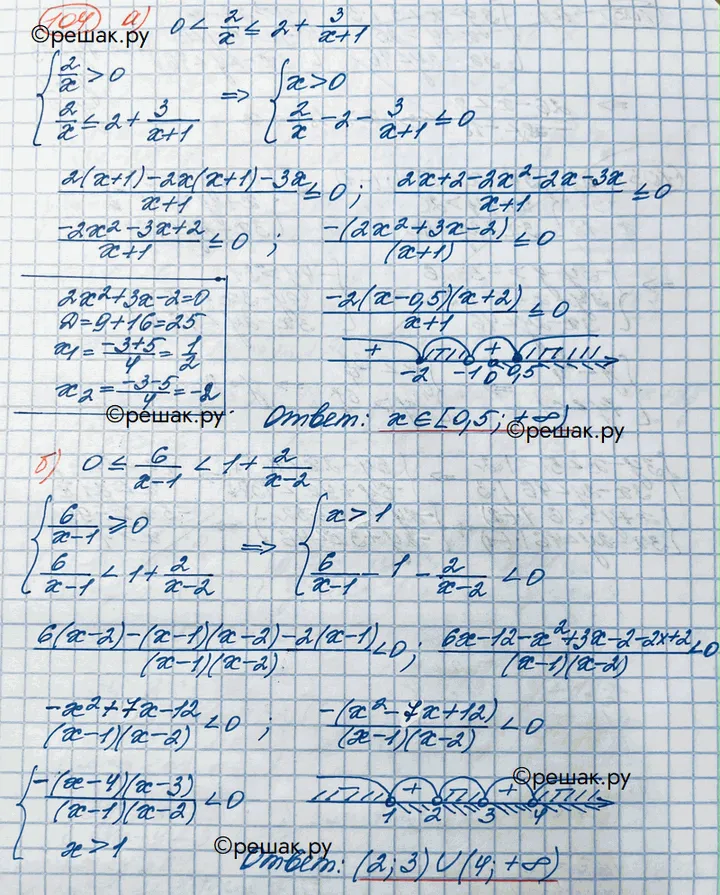 104 а) 0 < 2/x ≤ 2 + 3/(x+1)
©решак.ру
{ 2/x > 0 ⇒ { x > 0
2/x ≤ 2 + 3/(x+1) 2/x - 2 - 3/(x+1) ≤ 0
(2(x+1)-2x(x+1)-3x)/(x+1) ≤ 0 ; (2x+2-2x²-2x-3x)/(x+1) ≤ 0
(-2x²-3x+2)/(x+1) ≤ 0 ; (-(2x²+3x-2))/(x+1) ≤ 0
2x²+3x-2=0
D=9+16=25
x₁ = (-3+5)/4 = 1/2
x₂ = (-3-5)/4 = -2
(-2(x-0,5)(x+2))/(x+1) ≤ 0
+ +
-2 -1 0 0,5
©решак.ру
Ответ: x ∈ [0,5; +∞)
©решак.ру
б) 0 ≤ 6/(x-1) < 1 + 2/(x-2)
{ 6/(x-1) ≥ 0 ⇒ { x > 1
6/(x-1) < 1 + 2/(x-2) 6/(x-1) - 1 - 2/(x-2) < 0
(6(x-2)-(x-1)(x-2)-2(x-1))/((x-1)(x-2)) < 0 ; (6x-12-x²+3x-2-2x+2)/((x-1)(x-2)) < 0
(-x²+7x-12)/((x-1)(x-2)) < 0 ; (-(x²-7x+12))/((x-1)(x-2)) < 0
{ (-(x-4)(x-3))/((x-1)(x-2)) < 0
x > 1
©решак.ру
+ +
1 2 3 4
©решак.ру
Ответ: (2; 3) ∪ (4; +∞)